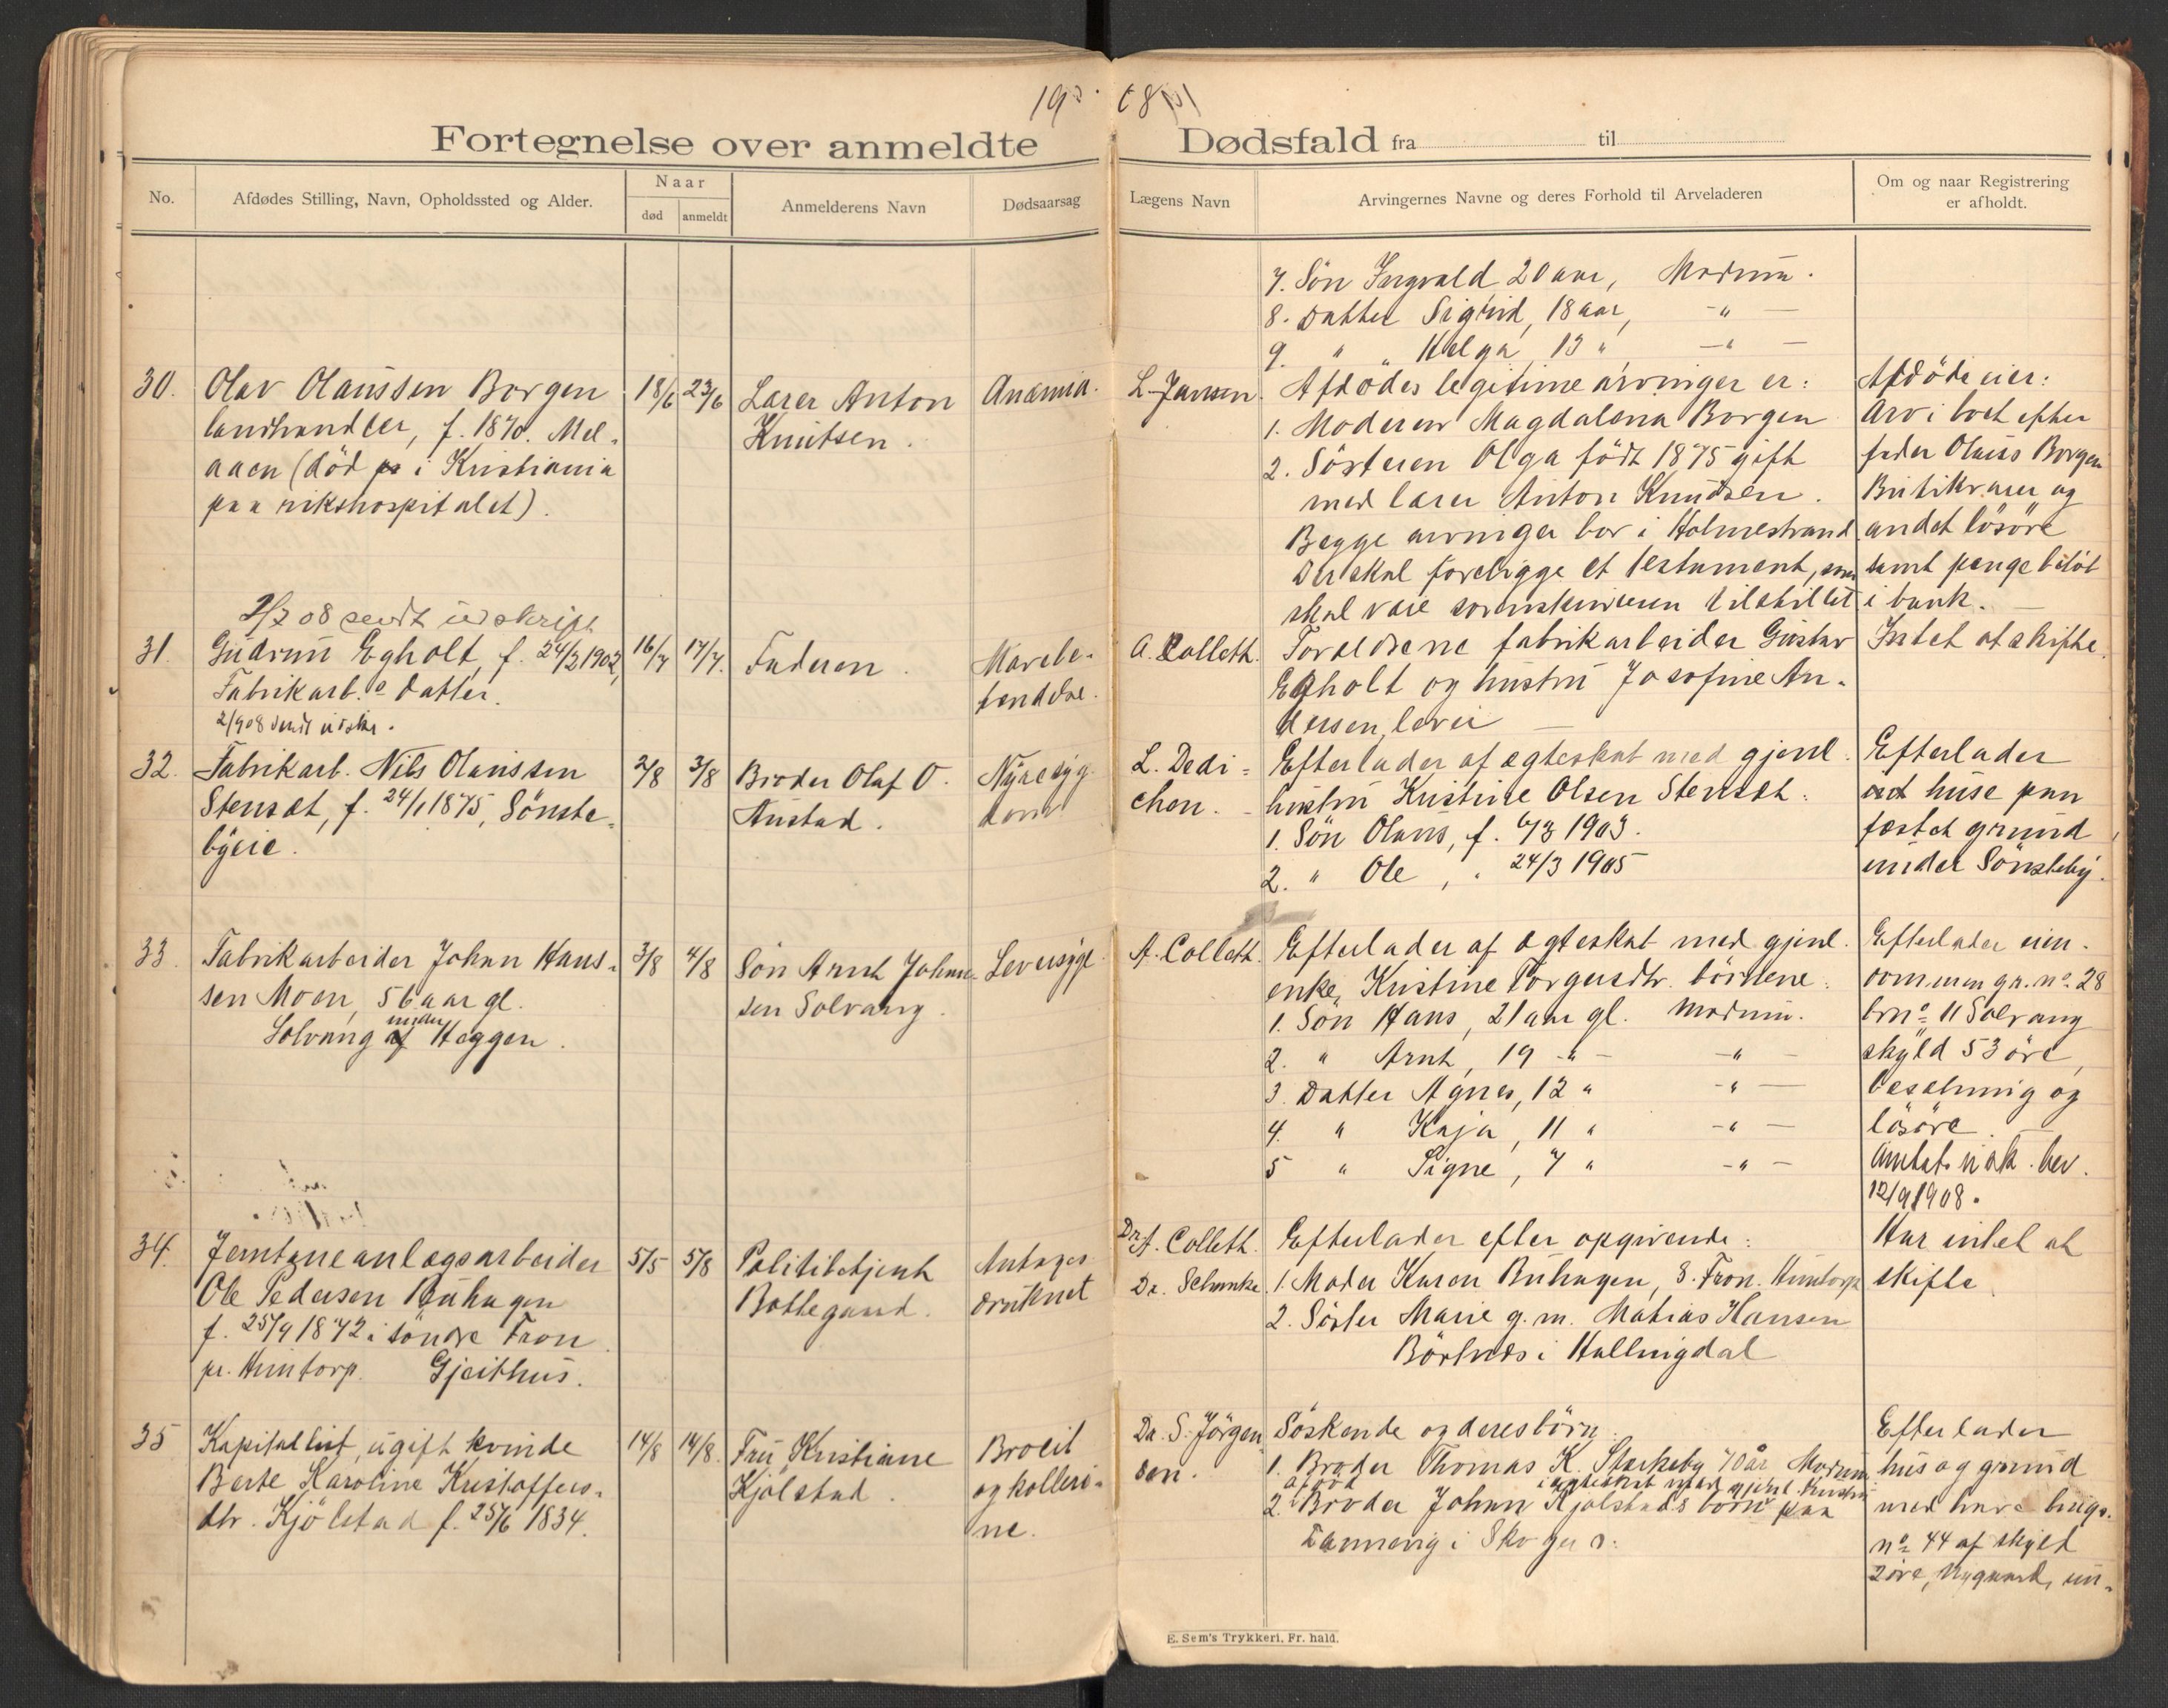 1908
Fortegnelse over anmeldte Dødsfald fra til
No.
Afdødes Stilling, Navn, Opholdssted og Alder.
Naar
død
anmeldt
Anmelderens Navn
Dødsaarsag
Lægens Navn
Arvingernes Navne og deres Forhold til Arveladeren
Om og naar Registrering
er afholdt.
7. Sön Ingvald 20 aar, Modum.
8. Datter Sigrid, 18 aar, -"-
9. " " Helga, 13 " -"-
30.
Olav Olaussen Borgen
landhandler, f. 1870. Mel-
aaen (död i Kristiania
paa rikshospitalet).
18/6
23/6
Lærer Anton
Knutsen.
Anæmia.
L. Jansen.
Afdödes legitime arvinger er:
1. Moderen Magdalena Borgen
2. Sösteren Olga födt 1875 gift
med lærer Anton Knudsen.
Begge arvinger bor i Holmestrand
Der skal foreligge et testament, som
skal være sorenskriveren tilstillet
Afdöde eier:
Arv i boet efter
fader Olaus Borgen
Butikvarer og
andet lösöre
samt pengebelöb
i bank.
2/7 08 sendt udskrift
31.
Gudrun Egholt, f. 24/2 1902,
Fabrikarb.s datter.
2/9 08 sendt udskr.
16/7
17/7.
Faderen.
Mavebe-
tændelse.
A. Colleth.
Forældrene fabrikarbeider Gustav
Egholt og hustru Josefine An-
dersen, lever
Intet at skifte.
32.
Fabrikarb. Nils Olaussen
Stensæt, f. 24/1 1875, Sönste-
byeie.
2/8
3/8
Broder Olaf O.
Austad.
Nyresyg-
dom
L. Dedi=
chen.
Efterlader af ægteskab med gjenl.
hustru Kristine Olsen Stensæt:
1. Sön Olaus, f. 6/3 1903.
2. " Ole, " 24/3 1905
Efterlader
et huse paa
fæstet grund
under Sönsteby.
33.
Fabrikarbeider Johan Hans-
sen Moen, 56 aar gl.
Solvang under Heggen.
3/8
4/8
Sön Arnt Johan-
sen Solvang.
Leversyge
A. Colleth.
Efterlader af ægteskab med gjenl.
enke, Kristine Torgersdtr. börnene:
1. Sön Hans, 21 aar gl. Modum.
2. " Arnt, 19 -"- -"-
3. Datter Agnes, 12 " -"-
4. " Kaja, 11 " -"-
5 " Signe, 7 " -"-
Efterlader eien-
dommen gr. no. 28
brno 11 Solvang
skyld 53 öre,
besætning og
lösöre.
Amtets usk. bev.
12/9 1908.
34.
Jernbaneanlægsarbeider
Ole Pedersen Buhagen
f. 25/9 1872 i söndre Fron
pr. Huntorp. Gjeithus.
5/5
5/8
Politibetjent
Bottegaard.
Antages
druknet
Dr. A. Colleth.
Dr. Schanke
Efterlader efter opgivende:
1. Moder Karen Buhagen, S. Fron. Huntorp
2. Söster Marie g. m. Matias Hansen
Börtnes i Hallingdal
Har intet at
skifte
35
Kapitalist, ugift kvinde
Berte Karoline Kristoffers-
dtr. Kjölstad f. 25/6 1834.
14/8
14/8.
Fru Kristiane
Kjölstad.
Brocit
og kolleri-
ne.
Dr. S. Jörgen
sen.
Söskende og deres börn
1. Broder Thomas K. Starkeby 70 år Modum
afdöd i ægteskab med gjenl. hustru
2. Broder Johan Kjölstads börn paa
i Skoger:
Efterlader
hus og grund
med have brugs-
no 44 af skyld
2 öre, Nygaard, un-
E. Sem's Trykkeri, Fr. hald.